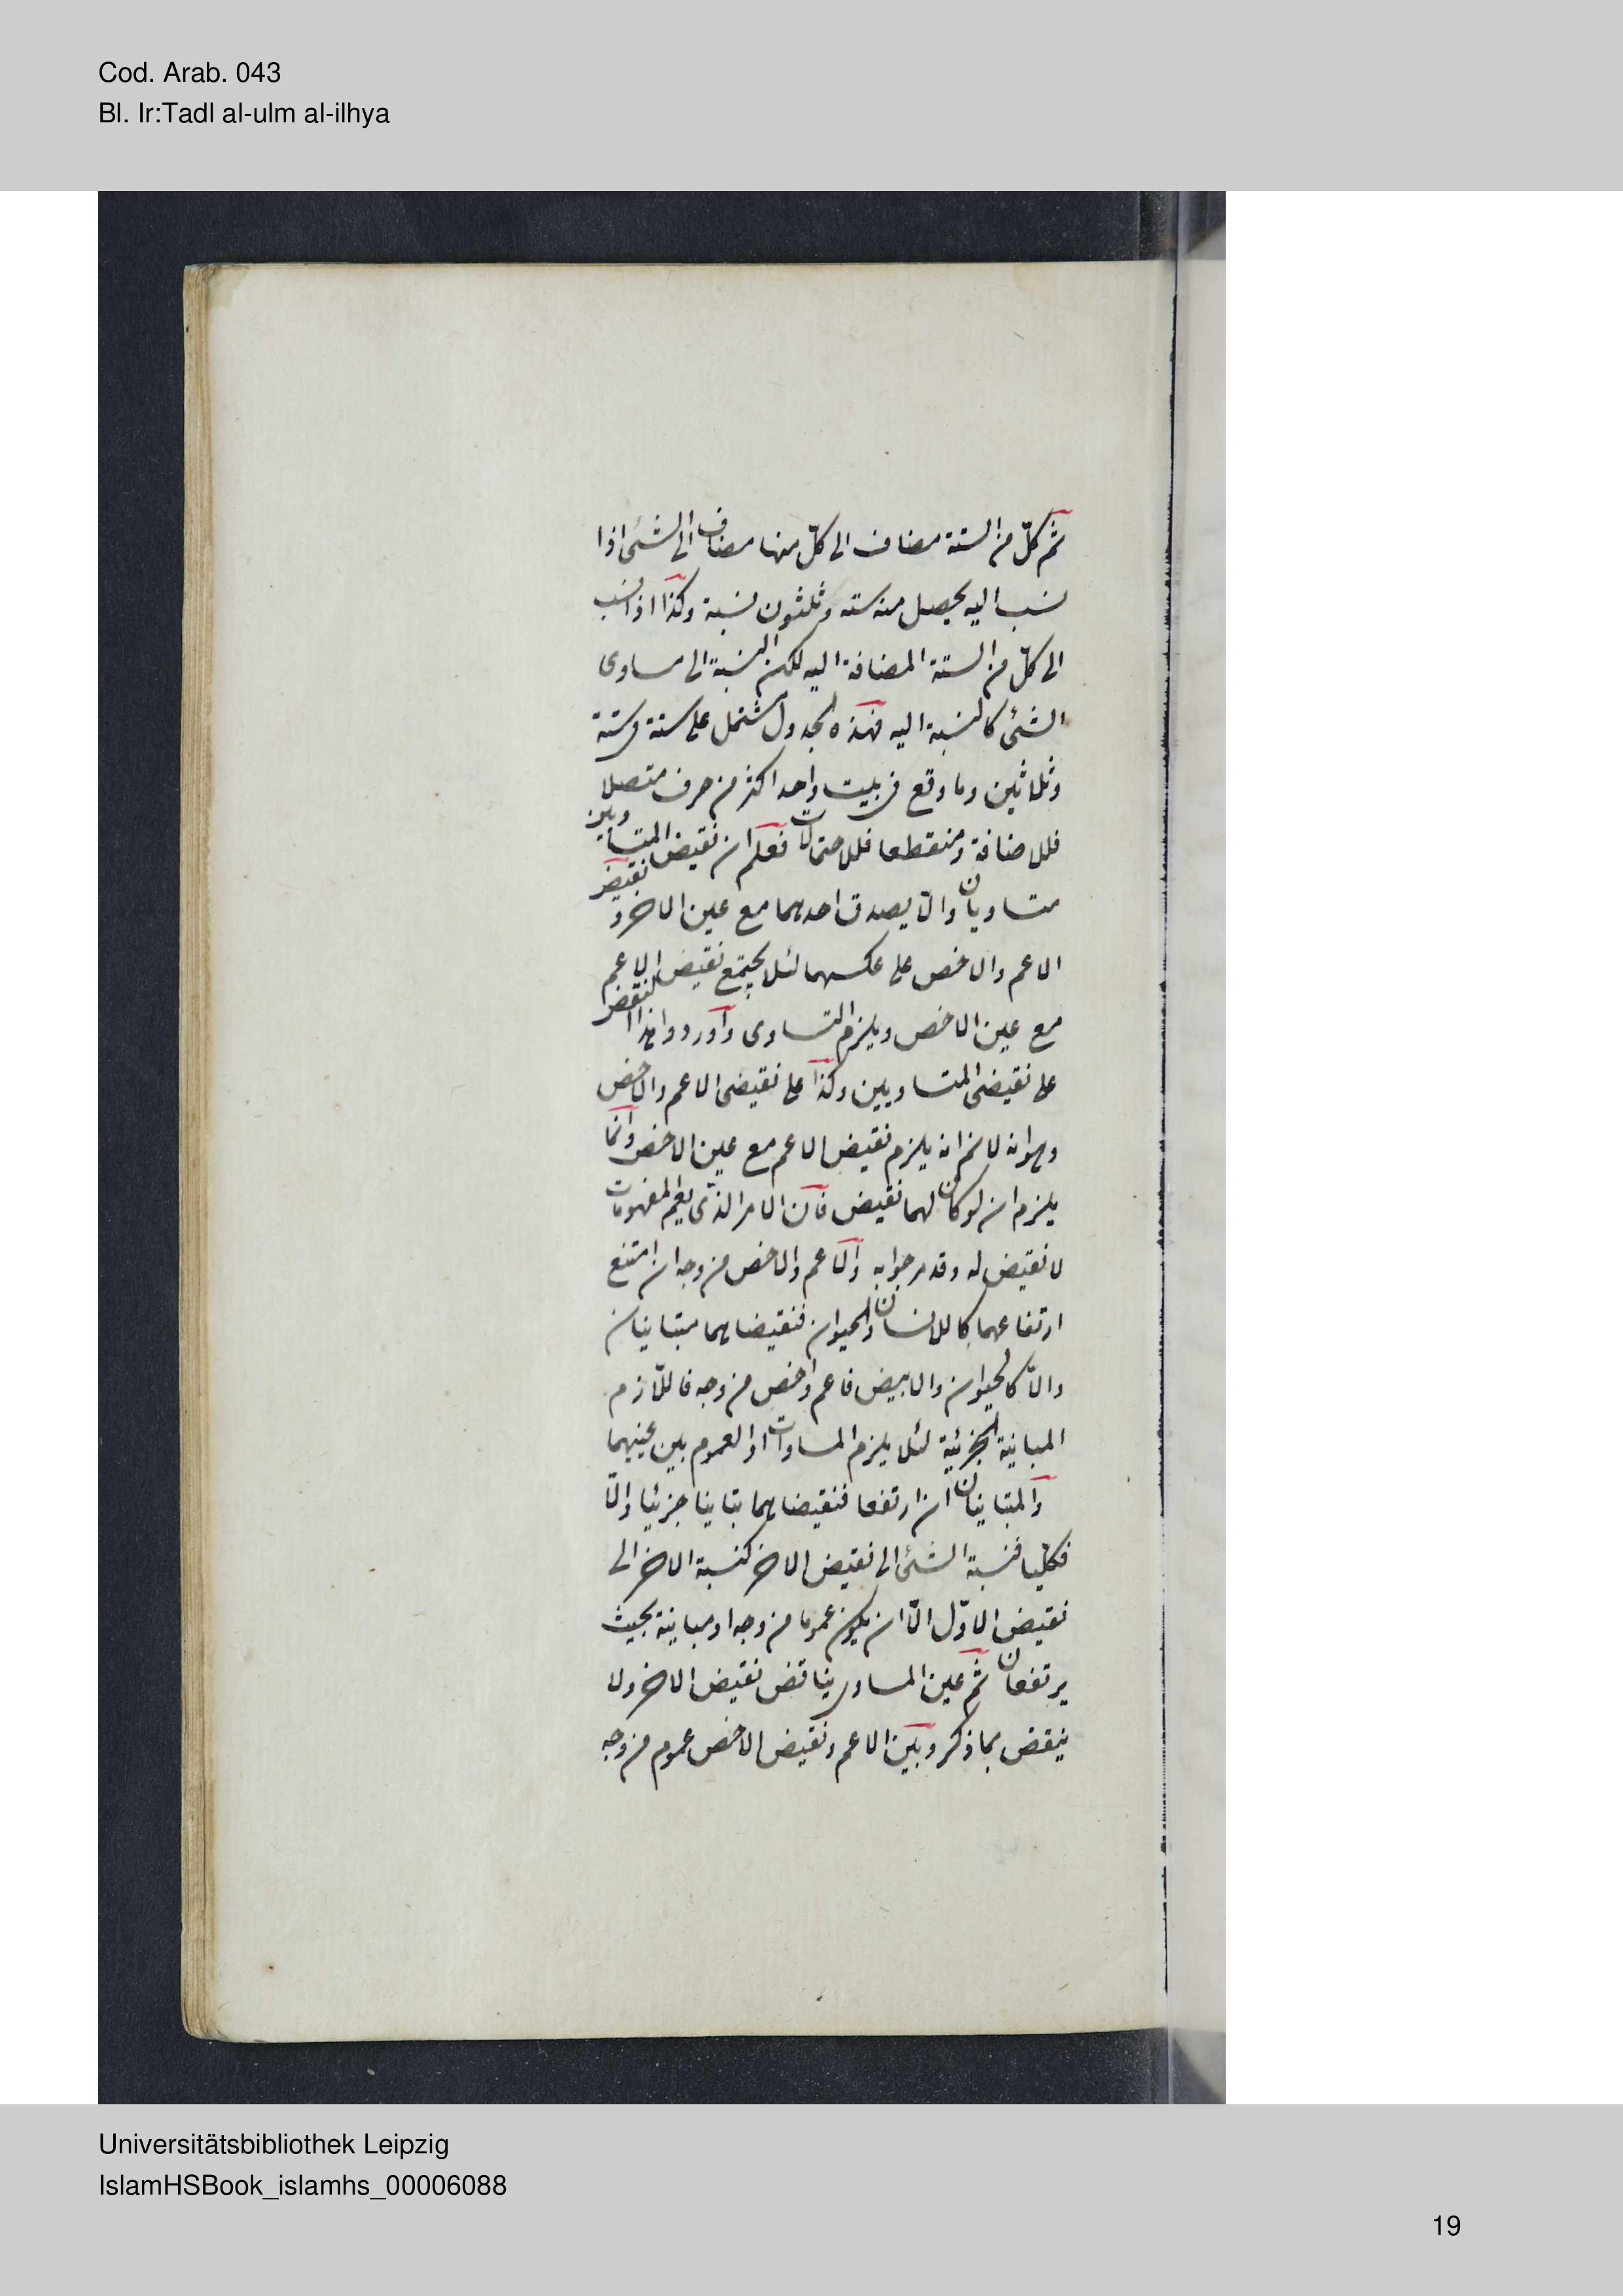 Cod. Arab. 043
Bl. Ir:Tadl al-ulm al-ilhya
ثم كلّ من الستة مضاف الى كلّ منها مضاف الى الشئ اذا
نسب اليه يحصل منه سته وثلثون نسبة وكذا اذا نسب
الى كلّ من الستة المضافة اليه لكن النسبة الى مساوى
الشئ كالنسبة اليه فهذه الجدول مشتمل على ستة وستة
وثلاثين وما وقع فى بيت واحد اكثر من حرف متصلا
فللاضافة ومنقطعا فللاحتمالات فعلم ان نقيض المتساويين
متساويان والّا يصدق احدهما مع عين الاخر ونقيض
الاعم والاخص على عكسهما لئلا يجتمع نقيض الاعم
مع عين الاخص ويلزم التساوى وآوردوا هذا النقض
على نقيضى المتساويين وكذا على نقيضى الاعم والاخص
وهو انه لانم انه يلزم نقيض الاعم مع عين الاخص وانّما
يلزم ان لو كان لهما نقيض فان الامر الذى يعم المفهومات
لا نقيض له وقد مر جوابه والاعم والاخص من وجه ان امتنع
ارتفاعهما كاللاانسان والحيوان فنقيضاهما متباينان
والّا كالحيوان والابيض فاعم واخص من وجه فاللّازم
المباينة الجزئية لئلا يلزم المساوات او العموم بين عينيهما
والمتباينان ان ارتفعا فنقيضاهما تباينا جزئيا والّا
فكليا فنسبة الشئ الى نقيض الاخر كنسبة الاخر الى
نقيض الاوّل الّا ان يكون عموما من وجه او مباينة بحيث
يرتفعان ثم عين المساوى يناقض نقيض الاخر ولا
ينقض بما ذكر وبين الاعم ونقيض الاخص عموم من وجه
Universitätsbibliothek Leipzig
IslamHSBook_islamhs_00006088
19